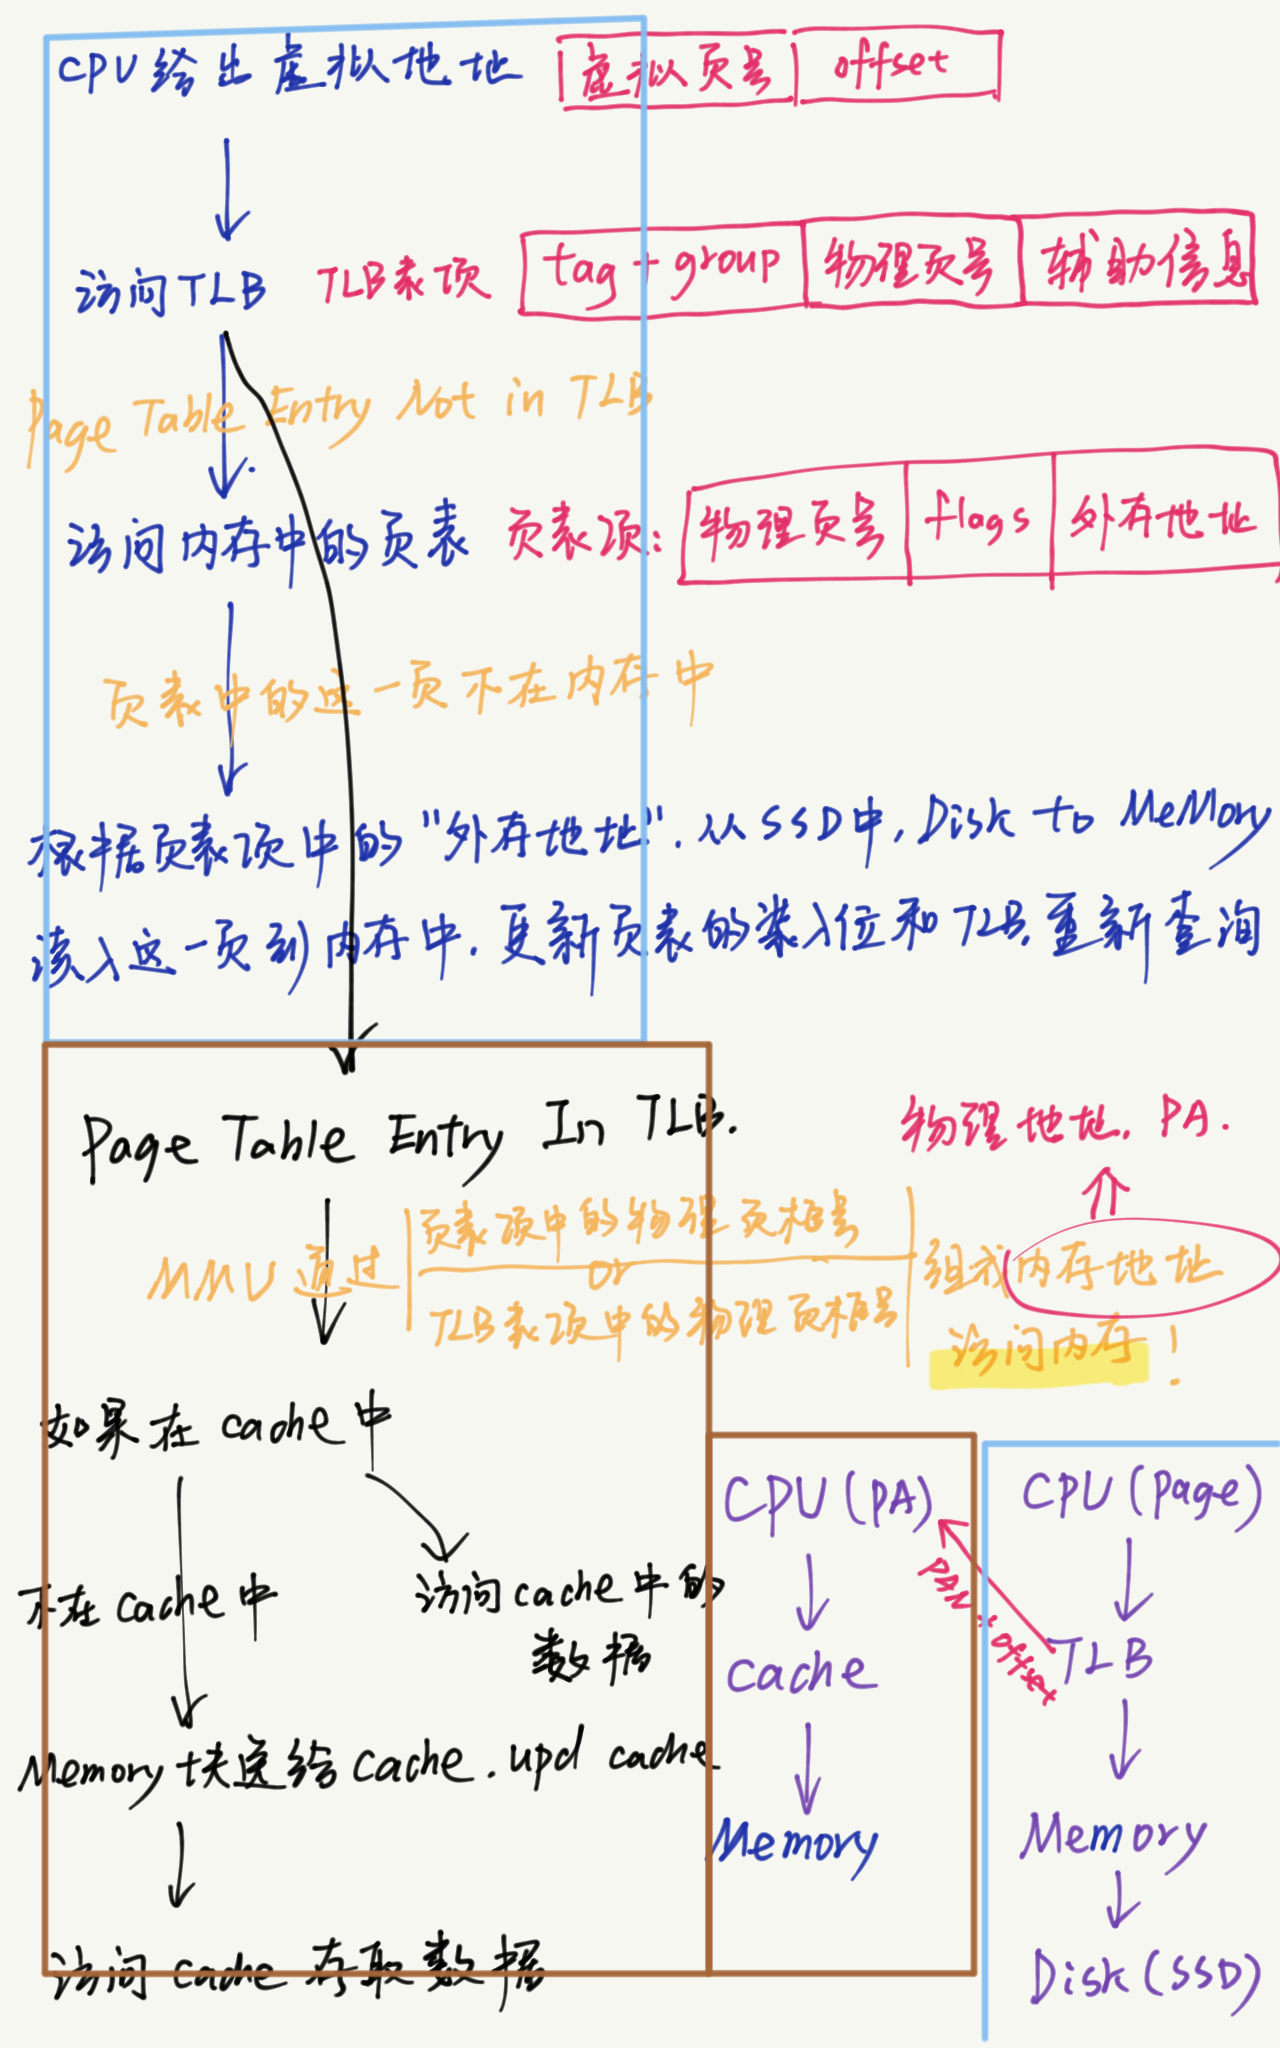 CPU给出虚拟地址 虚拟页号 offset
访问TLB TLB表项 tag + group 物理页号 辅助信息
Page Table Entry Not in TLB
访问内存中的页表 页表项: 物理页号 flags 外存地址
页表中的这一页不在内存中
根据页表项中的"外存地址".从SSD中,Disk to MeMory
读入这一页到内存中.更新页表的装入位和TLB.重新查询
Page Table Entry In TLB.
物理地址. PA.
MMU通过
页表项中的物理页框号
or
TLB表项中的物理页框号
组成内存地址
访问内存!
如果在cache中
不在cache中
访问cache中的
数据
Memory块送给cache.upd cache
访问cache存取数据
CPU(PA)
cache
Memory
CPU(Page)
TLB
Memory
Disk(SSD)
+ offset